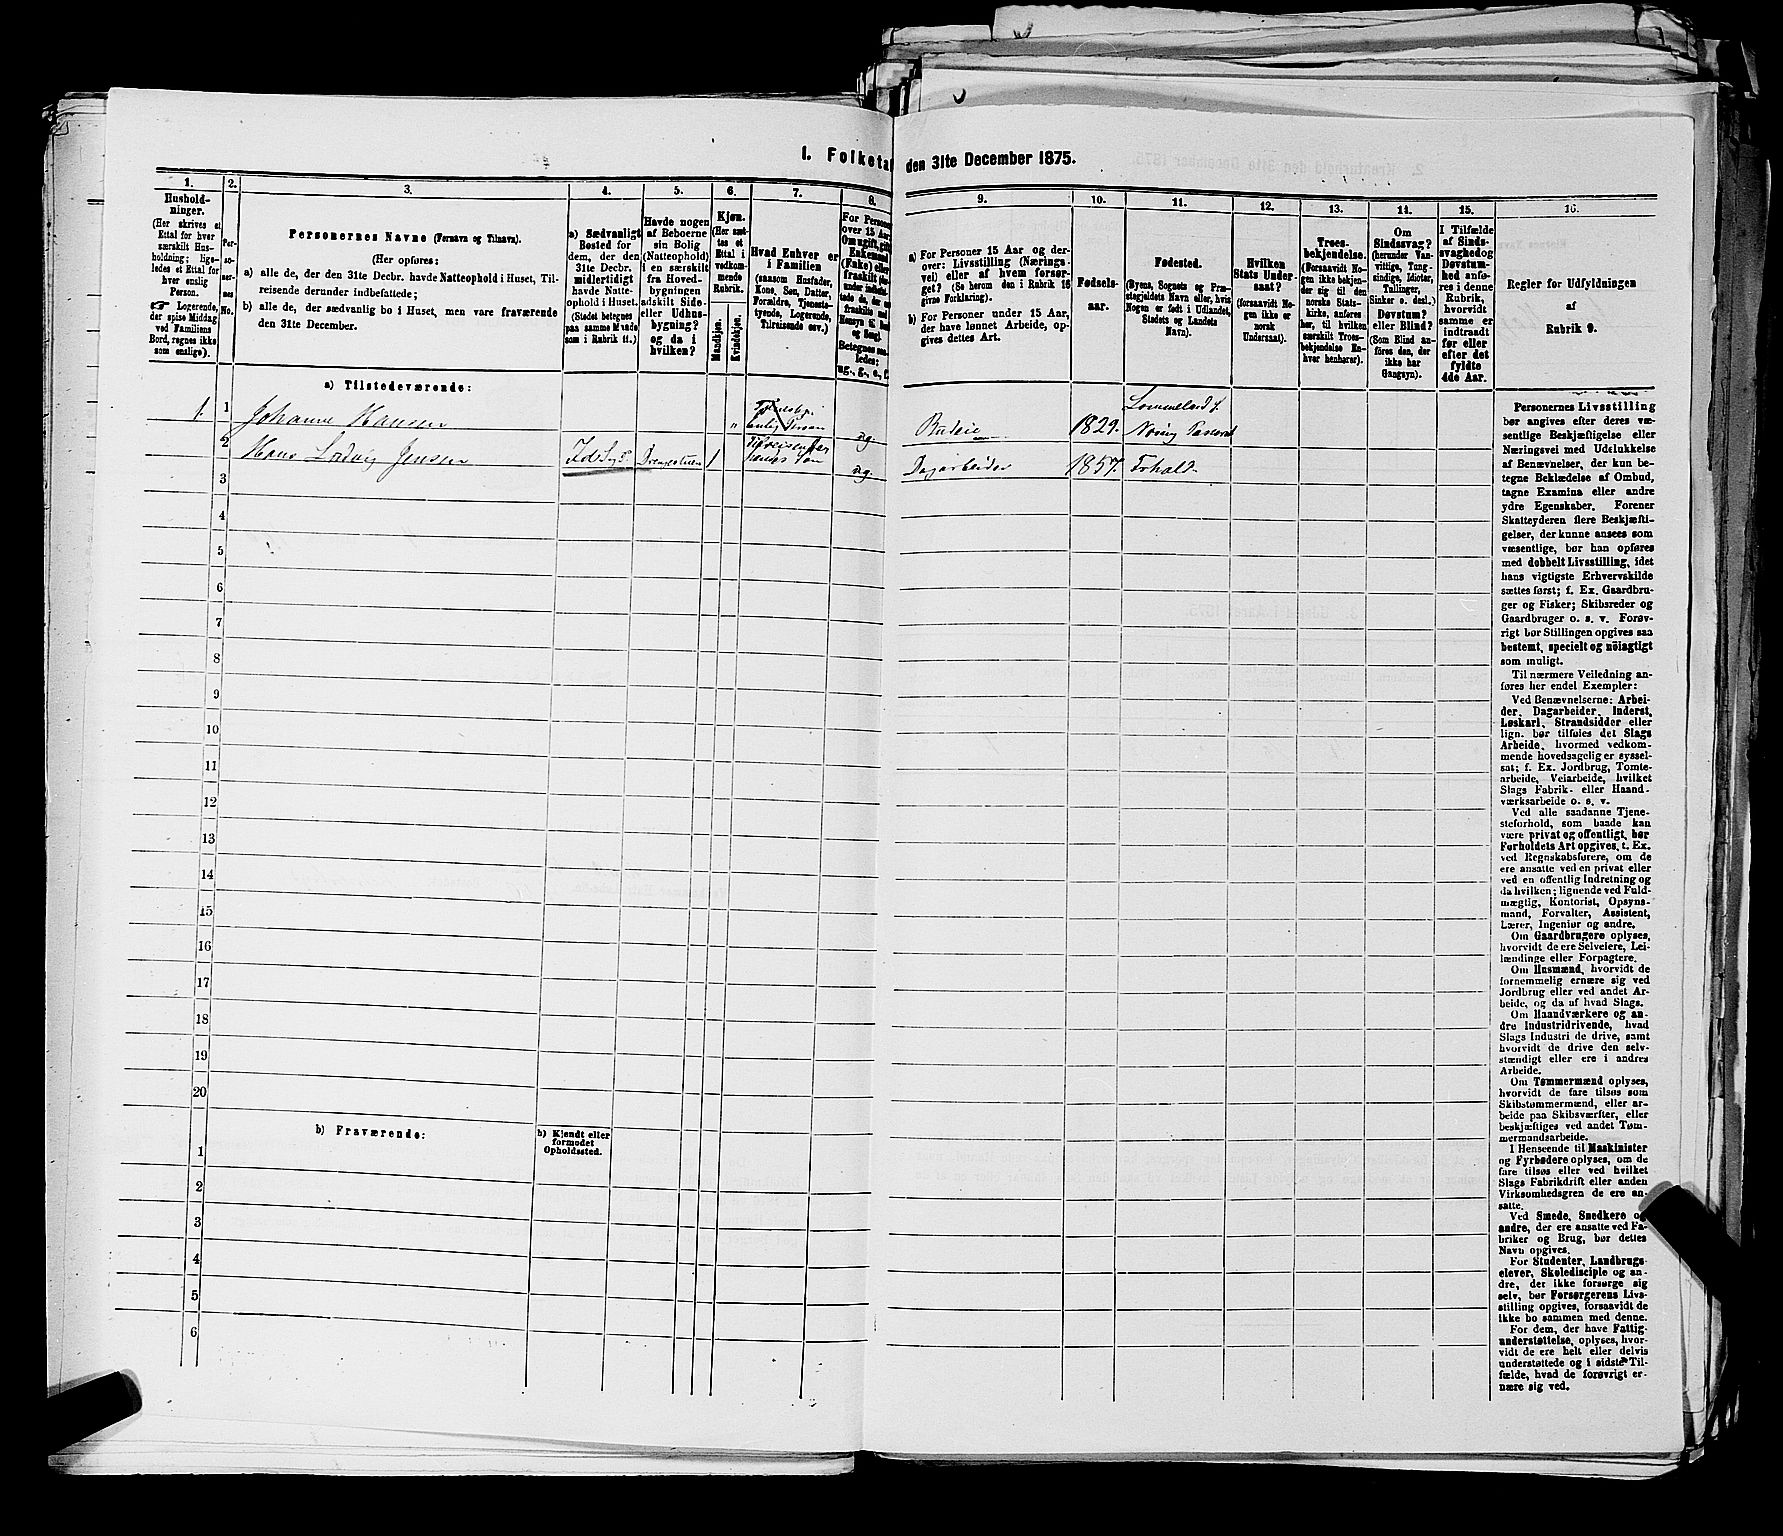 1. Folketal
den 31te December 1875.
1.
Hushold-
ninger.
(Her skrives et
Ettal for hver
særskilt Hus-
holdning; lige-
ledes et Ettal for
hver enslig
Person.
☞ Logerende,
der spise Middag
ved Familiens
Bord, regnes ikke
som enslige).
2.
Per-
so-
ner-
nes
No.
3.
Personernes Navne (Fornavn og Tilnavn).
(Her opføres:
a) alle de, der den 31te Decbr. havde Natteophold i Huset, Til-
reisende derunder indbefattede;
b) alle de, der sædvanlig bo i Huset, men vare fraværende
den 31te December.
4.
a) Sædvanligt
Bosted for
dem, der den
31te Decbr.
midlertidigt
havde Natte-
ophold i Huset.
(Stedet betegnes
paa samme Maade
som i Rubrik 11.)
5.
Havde nogen
af Beboerne
sin Bolig
(Natteophold)
i en særskilt
fra Hoved-
bygningen
adskilt Side-
eller Udhus-
bygning?
og da i
hvilken?
6.
Kjøn.
(Her sæt-
tes et
Ettal i
vedkom-
mende
Rubrik.
Mandkjøn.
Kvindekjøn.
7.
Hvad Enhver er
i Familien
(saasom Husfader,
Kone, Søn, Datter,
Forældre, Tjeneste-
tyende, Logerende,
Tilreisende osv.)
8.
For Personer
over 15 Aar:
Om ugift, gift,
Enkemand
(Enke) eller
fraskilt
Betegnes saa-
ledes:
ug., g., e., f.
9.
a) For Personer 15 Aar og der-
over: Livsstilling (Nærings-
vei) eller af hvem forsør-
get? (Se herom den i Rubrik 16
givne Forklaring).
b) For Personer under 15 Aar,
der have lønnet Arbeide, op-
gives dettes Art.
10.
Fødsels-
aar.
11.
Fødested.
(Byens, Sognets og Præ-
stegjeldets Navn eller, hvis
Nogen er født i Udlandet,
Stedets og Landets
Navn).
12.
Hvilken
Stats Under-
saat?
(forsaavidt No-
gen ikke er
norsk
Undersaat).
13.
Troes-
bekjendelse.
(Forsaavidt No-
gen ikke bekjen-
der sig til den
norske Stats-
kirke, anføres
her, til hvilken
særskilt Troes-
bekjendelse En-
hver henhører).
14.
Om
Sindssvag?
(herunder Van-
vittige, Tung-
sindige, Idioter,
Tullinger,
Sinker o. desl.)
Døvstum?
eller Blind?
(Som Blind an-
føres den, der
ikke har
Gangsyn).
15.
I Tilfælde
af Sinds-
svaghed og
Døvstum-
hed anfø-
res i denne
Rubrik,
hvorvidt
samme er
indtraadt
før eller
efter det
fyldte
4de Aar.
16.
Regler for Udfyldningen
af
Rubrik 9.
a) Tilstedeværende:
1. 1 Johanne Hansen " enslig Person ug. Budeie 1829.
2 Hans Ludvig Jensen Drengestuen 1 Tilreisende ug. Dagarbeider 1857.
3
4
5
6
7
8
9
10
11
12
13
14
15
16
17
18
19
20
b) Fraværende:
b) Kjendt eller
formodet
Opholdssted.
1
2
3
4
5
6
Personernes Livsstilling
bør angives efter deres væ-
sentlige Beskjæftigelse eller
Næringsvei med Udelukkelse
af Benævnelser, der kun be-
tegne Beklædelse af Ombud,
tagne Examina eller andre
ydre Egenskaber. Forener
Skatteyderen flere Beskjæfti-
gelser, der kunne ansees som
væsentlige, bør han opføres
med dobbelt Livsstilling, idet
hans vigtigste Erhvervskilde
sættes først; f. Ex. Gaardbru-
ger og Fisker; Skibsreder og
Gaardbruger o. s. v. Forøv-
rigt bør Stillingen opgives saa
bestemt, specielt og nöiagtigt
som muligt.
Til nærmere Veiledning an-
føres her endel Exempler:
Ved Benævnelserne: Arbei-
der, Dagarbeider, Inderst,
Løskarl, Strandsidder eller
lign. bør tilføies det Slags
Arbeide, hvormed vedkom-
mende hovedsagelig er syssel-
sat; f. Ex. Jordbrug, Tomte-
arbeide, Veiarbeide, hvilket
Slags Fabrik- eller Haand-
værksarbeide o. s. v.
Ved alle saadanne Tjene-
steforhold, som baade kan
være privat og offentligt, bør
Forholdets Art opgives, t. Ex.
ved Regnskabsførere, om de
ere ansatte ved en privat eller
ved en offentlig Indretning og
da hvilken; lignende ved Fuld-
mægtig, Kontorist, Opsyns-
mand, Forvalter, Assistent,
Lærer, Ingeniør og andre.
Om Gaardbrugere oplyses,
hvorvidt de ere Selveiere, Lei-
lændinge eller Forpagtere.
Om Husmænd, hvorvidt de
fornemmelig ernære sig ved
Jordbrug eller ved andet Ar-
beide, og da af hvad Slags.
Om Haandværkere og an-
dre Industridrivende, hvad
Slags Industri de drive, samt
hvorvidt de drive den selv-
stændigt eller ere i andres
Arbeide.
Om Tømmermænd oplyses,
hvorvidt de fare tilsøs som
Skibstømmermænd, eller ar-
beide paa Skibsværfter, eller
beskjæftiges ved andet Tøm-
mermandsarbeide.
I Henseende til Maskinister
og Fyrbødere oplyses, om de
fare tilsøs eller ved hvilket
Slags Fabrikdrift eller anden
Virksomhedsgren de ere an-
satte.
Ved Smede, Snedkere og
andre, der ere ansatte ved Fa-
briker og Brug, bør dettes
Navn opgives.
For Studenter, Landbrugs-
elever, Skoledisciple og an-
dre, der ikke forsørge sig
selv, bør Forsørgerens Livs-
stilling opgives, forsaavidt de
ikke bo sammen med denne.
For dem, der have Fattig-
understøttelse, oplyses, hvor-
vidt de ere helt eller delvis
understøttede og i sidste Til-
fælde, hvad de forøvrigt er-
nære sig ved.